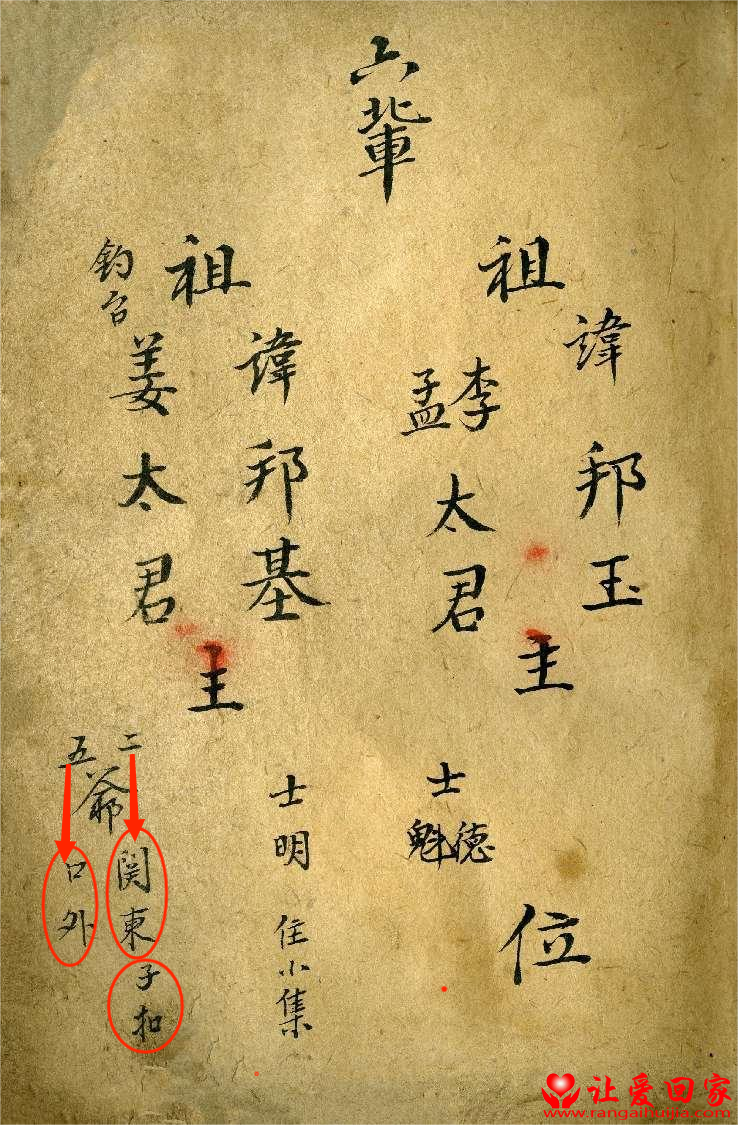 六輩
祖
諱邦玉
李孟太君
主
位
士德魁
祖
諱邦基
釣台
姜太君
主
士明 住小集
二五爺
関東
子扣
口外
让爱回家
www.rangaihuijia.com